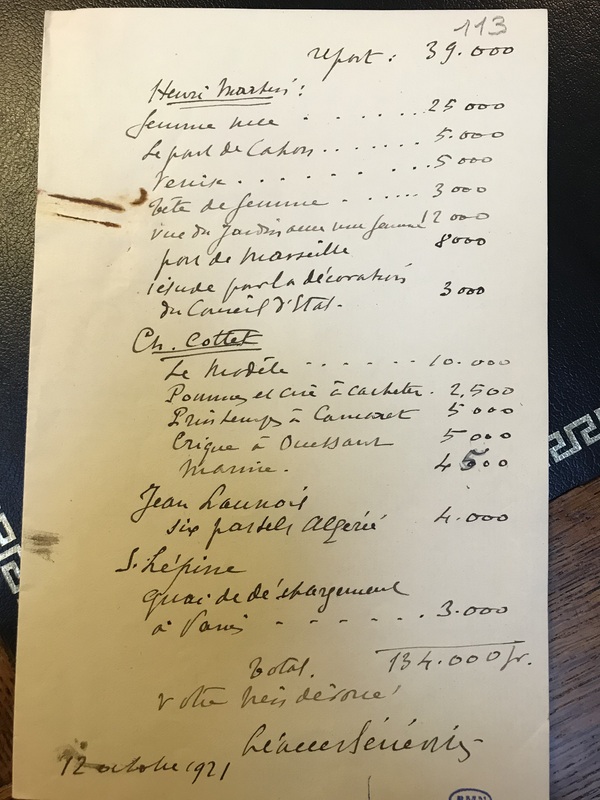 113
report : 39.000
Henri Martin :
femme nue . . . . . 25 000
Le pont de Cahors . . . . . . . 5.000
Venise . . . . . . . . . 5 000
tête de femme . . . . . . 3 000
vue du jardin avec une femme 12 000
port de Marseille 8000
1 étude pour la décoration
du Conseil d'Etat - 3 000
Ch. Cottet
Le Modèle - - - - - - 10.000
Pommes et cire à cacheter . 2,500
Printemps à Camaret 5 000
Crique à Ouessant 5 000
Marine . 4 500
Jean Launois
six pastels Algérie 4.000
S. Lépine
quai de déchargement
à Paris - - - - - - . 3.000
Total. 134.000 fr.
votre très dévoué
12 octobre 1921
RMN